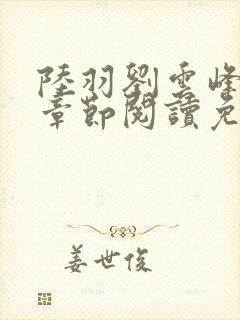 陸羽劉雲峰
章節閱讀免
姜世俊